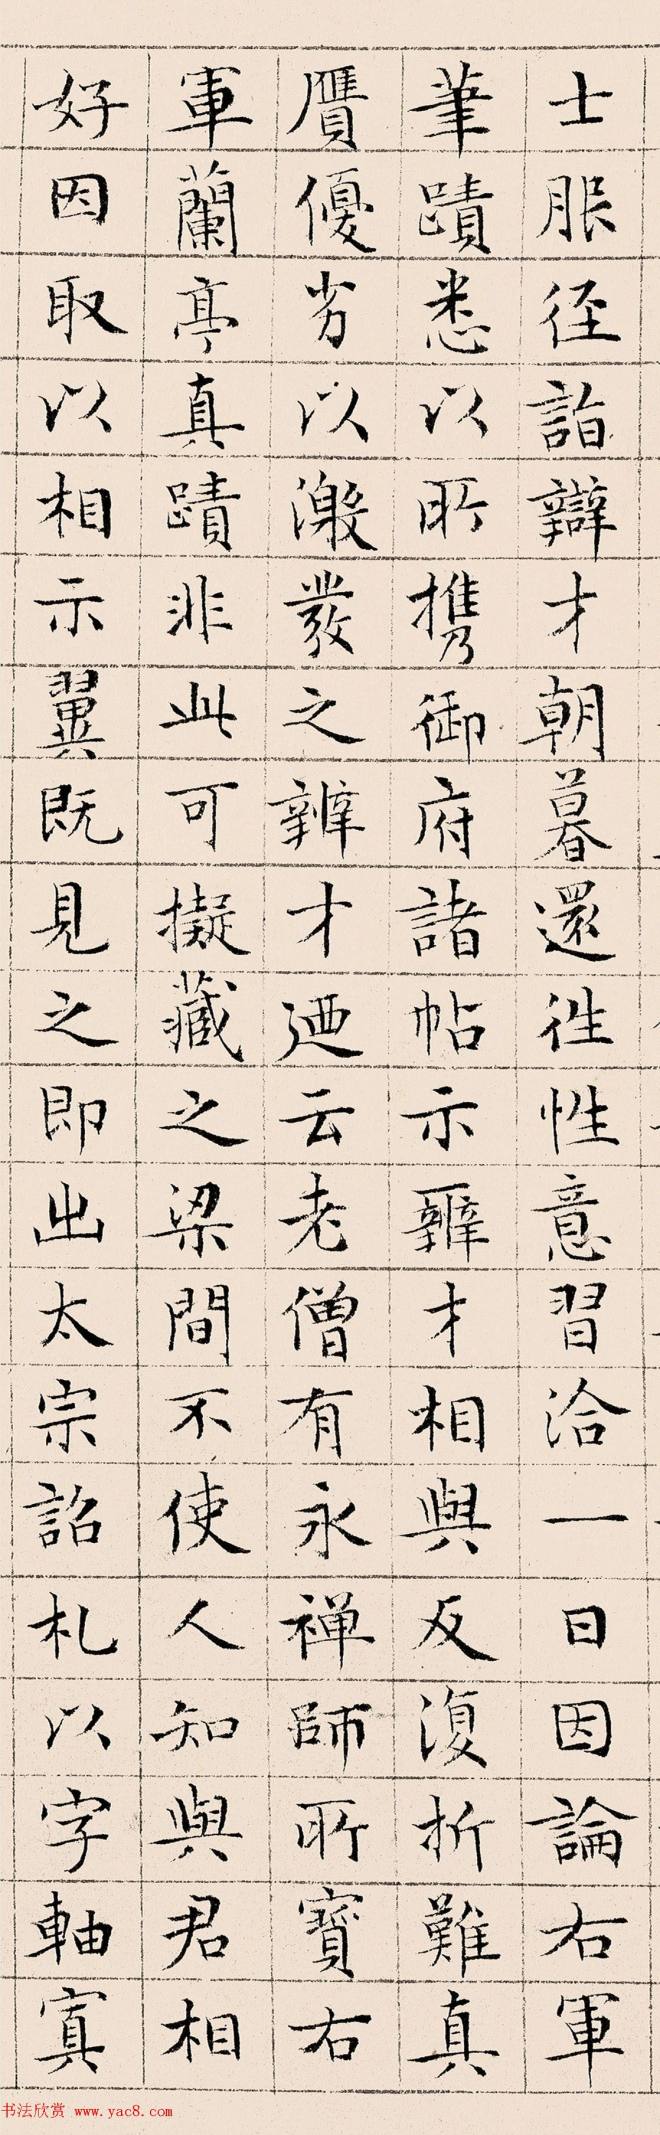 士服径詣辯才朝暮還徃性意習洽一日因論右軍
筆蹟悉以所携御府諸帖示辭才相與反復折難真
贋優劣以激發之辨才廼云老僧有永禅師所寳右
軍蘭亭真蹟非此可擬藏之梁間不使人知與君相
好因取以相示翼既見之即出太宗詔札以字軸寘
书法欣赏 www.yac8.com